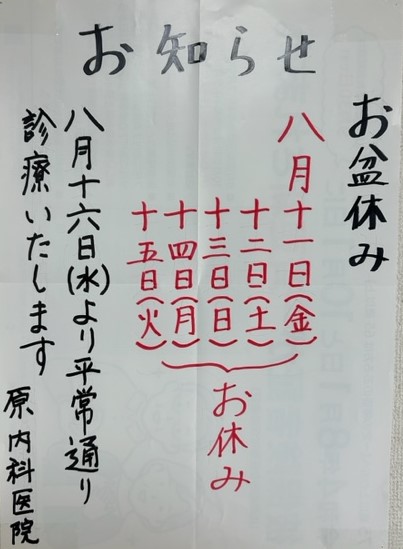 お知らせ
お盆休み
八月十一日(金)
十二日(土)
十三日(日)
十四日(月)
十五日(火)
お休み
八月十六日(水)より平常通り
診療いたします
原内科医院